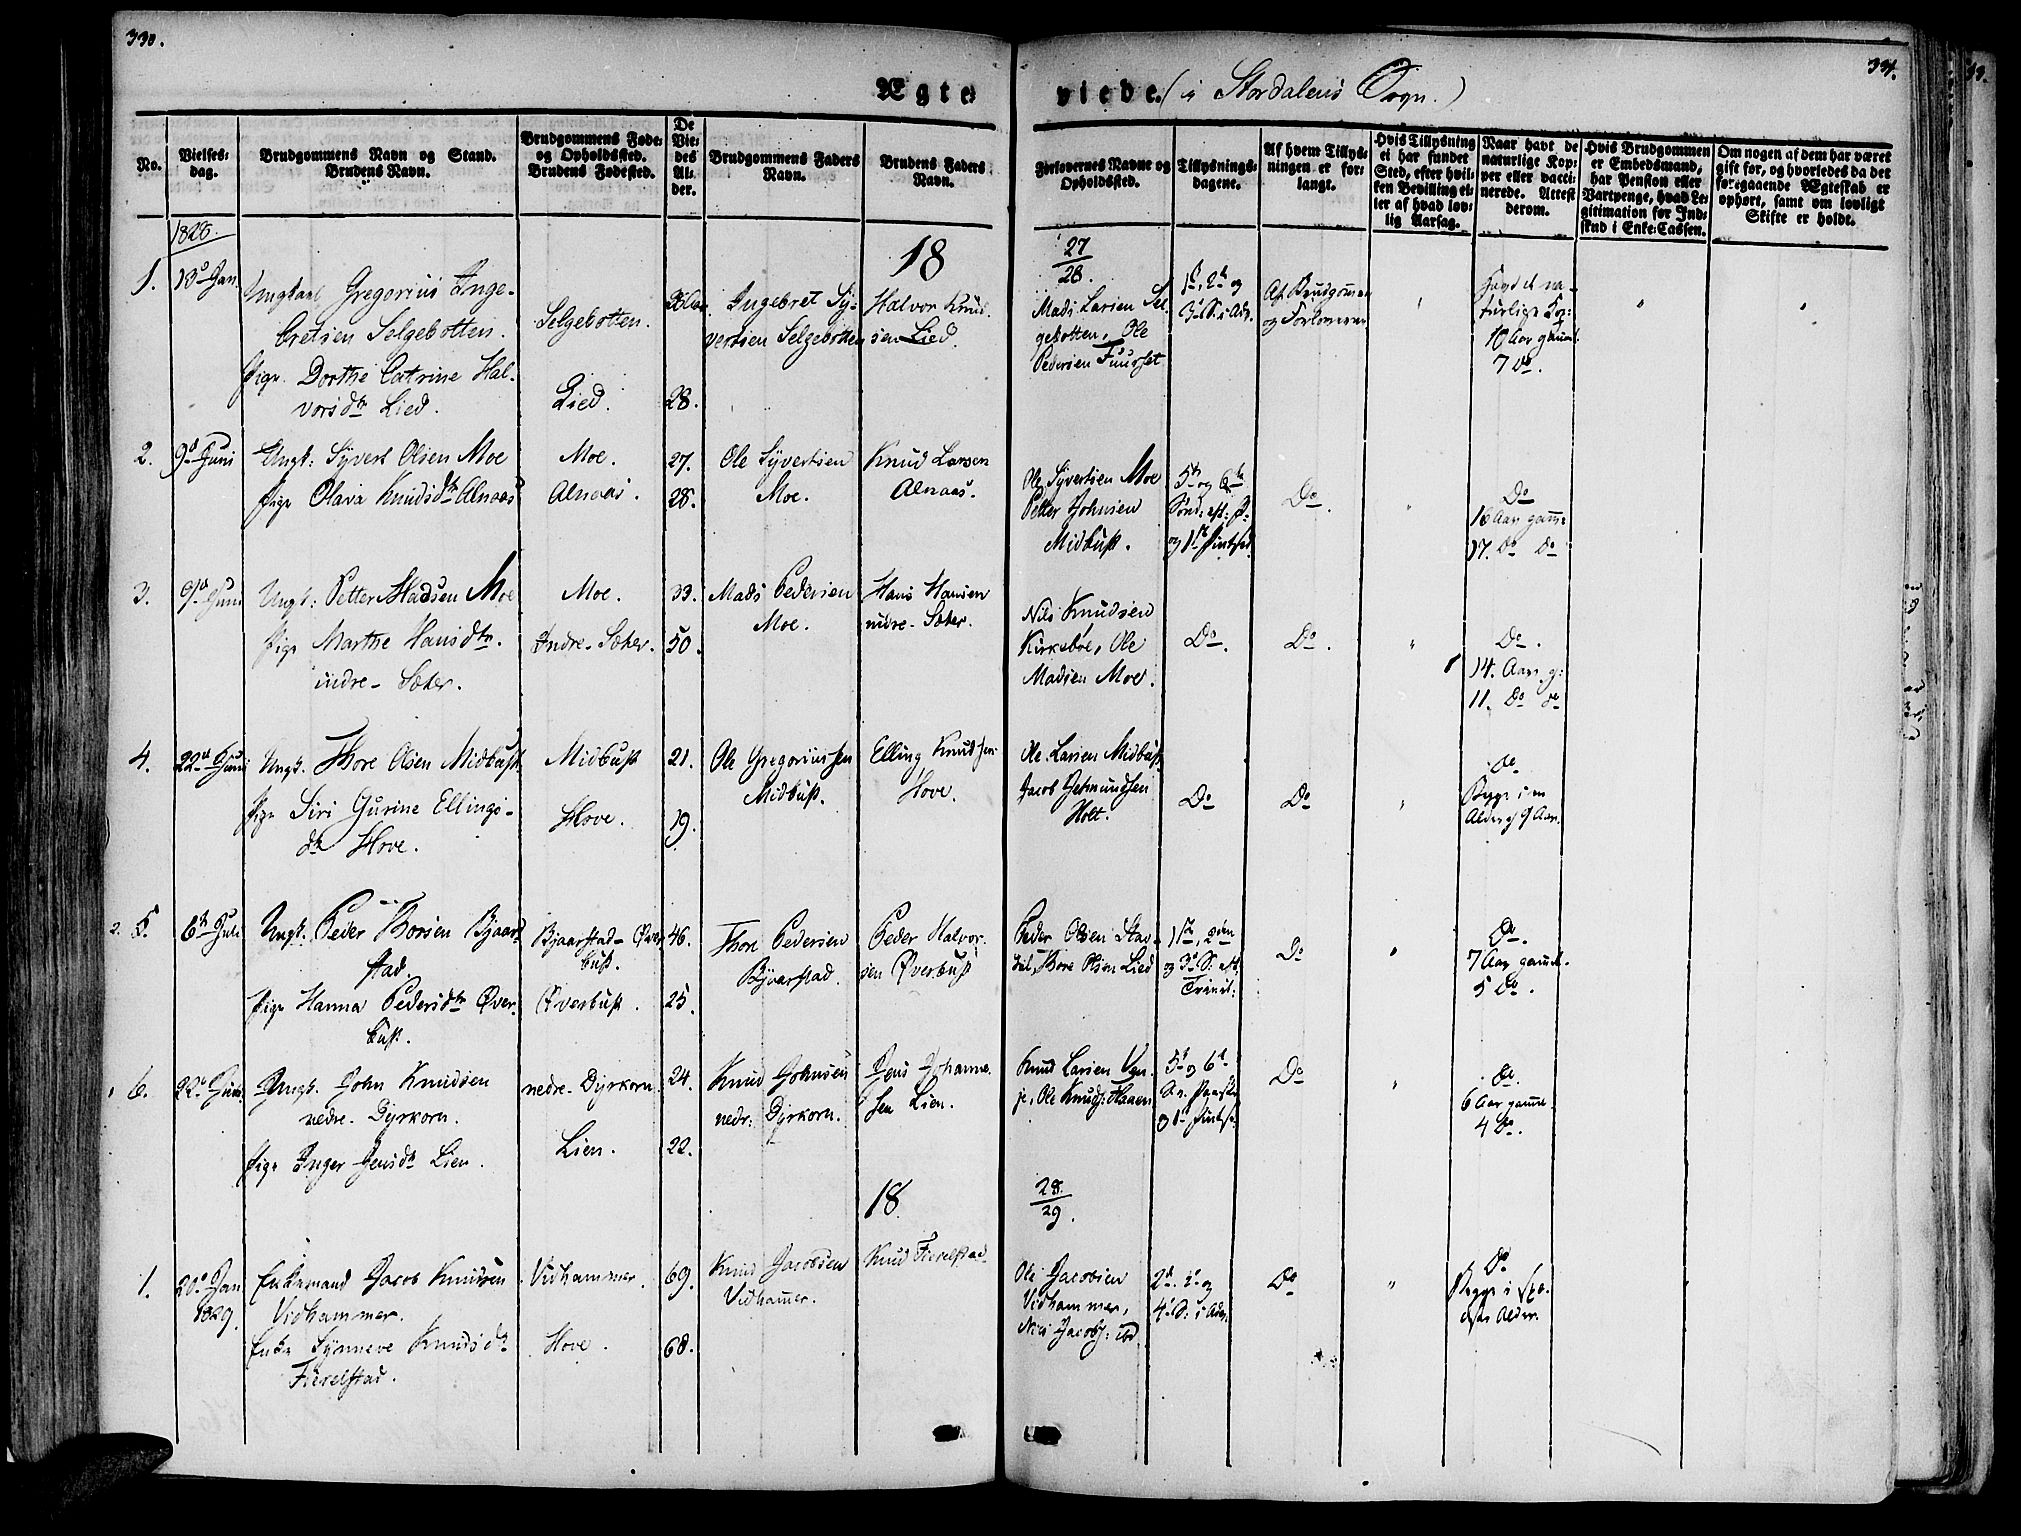 330.
331.
Ægte viede. (i Stordalens Sogn.)
No.
Vielses-
dag.
Brudgommens Navn og Stand.
Brudens Navn.
Brudgommens Føde-
og Opholdssted.
Brudens Fødested.
De
Vie-
des
Al-
der.
Brudgommens Faders
Navn.
Brudens Faders
Navn.
Forlovernes Navne og
Opholdssted.
Tillysnings-
dagene.
Af hvem Tillys-
ningen er for-
langt.
Hvis Tillysning
ei har fundet
Sted, efter hvil-
ken Bevilling el-
ler af hvad lov-
lig Aarsag.
Naar havt de
naturlige Kop-
per eller vacci-
nerede. Attest
derom.
Hvis Brudgommen
er Embedsmand,
har Pension eller
Vartpenge, hvad Le-
gitimation for Ind-
skud i Enke-Cassen.
Om nogen af dem har været
gift før, og hvorledes da det
foregaaende Ægteskab er
ophørt, samt om lovligt
Skifte er holdt.
1828.
18 27/28.
1. 13de Jan.
Ungkarl Gregorius Inge-
bretsen Selgebotten.
Pige Dorthe Catrine Hal-
vorsdtr Lied.
Selgebotten.
Lied.
28.
Ingebret Sy-
vertsen Selgebotten
Halvor Knud-
sen Lied.
Mads Larsen Sel-
gebotten, Ole
Pedersen Fuurset
1ste, 2den og
3die S: i Adv.
Af Brudgommen
og Forloverne
"
Havt de na-
turlige Kop:
10 Aar gaml.
7 Do.
"
"
2. 9de Juni
Ungk: Syvert Olsen Moe
Pige Olava Knudsdtr Alnaas
Moe.
Alnaas.
27.
28.
Ole Syvertsen
Moe.
Knud Larsen
Alnaas.
Ole Syvertsen Moe
Petter Johnsen
Midbust.
5te og 6te
Sønd: eft: P.
og 1ste Pintsed.
Do.
"
Do
16 Aar gamm
17. Do Do
3. 9de Juni
Ungk: Petter Madsen Moe
Pige Marthe Hansdtr.
indre- Sæter.
Moe.
Indre- Sæter.
33.
50.
Mads Pedersen
Moe.
Hans Hansen
indre- Sæter.
Nils Knudsen
Kirkebøe, Ole
Madsen Moe.
Do.
Do.
"
Do.
14. Aar g:
11. Do do
4. 22de Juni
Ungk. Thore Olsen Midbust
Pige Siri Gurine Ellings-
dtr Hove.
Midbust
Hove.
21.
19.
Ole Gregoriussen
Midbust.
Elling Knudsen
Hove.
Ole Larsen Midbust
Jacob Jetmundsen
Holt.
Do
Do
"
do
Begge i en
Alder af 9 Aar.
5. 6te Juli
Ungk. Peder Thorsen Bjaar-
stad.
Pige Hanna Pedersdtr Øver-
bust.
Bjaarstad- Øver-
bust.
Øverbust.
46.
25.
Thore Pedersen
Bjaarstad.
Peder Halvor-
sen Øverbust
Peder Olsen Stav-
dal, Thore Olsen Lied
1ste, 2den
og 3die S: eft.
Trinit:
Do
"
Do.
7 Aar gammel.
5 Do.
6. 22de Juni
Ungk. John Knudsen
nedre- Dyrkorn.
Pige Inger Jensdtr Lien.
nedre- Dyrkorn.
Lien.
24.
22.
Knud Johnsen
nedr: Dyrkorn.
Jens Johanne-
sen Lien.
Knud Larsen Ven-
je, Ole Knuds: Haaen
5te og 6te
S. e. Paaske
og 1ste Pintse.
Do
"
do.
6 Aar gamml.
4 Do.
18 28/29.
1. 20de Jan
1829.
Enkemand Jacob Knudsen
Vidhammer.
Enke Synneve Knudsdtr
Fierelstad.
Vidhammer.
Hove.
69.
68.
Knud Jacobsen
Vidhammer.
Knud Fierelstad
Ole Jacobsen
Vidhammer,
Nils Jacobs: ibd.
2den, 3die og
4de S: i Adv.
Do
"
Do
Begge i
Alder.